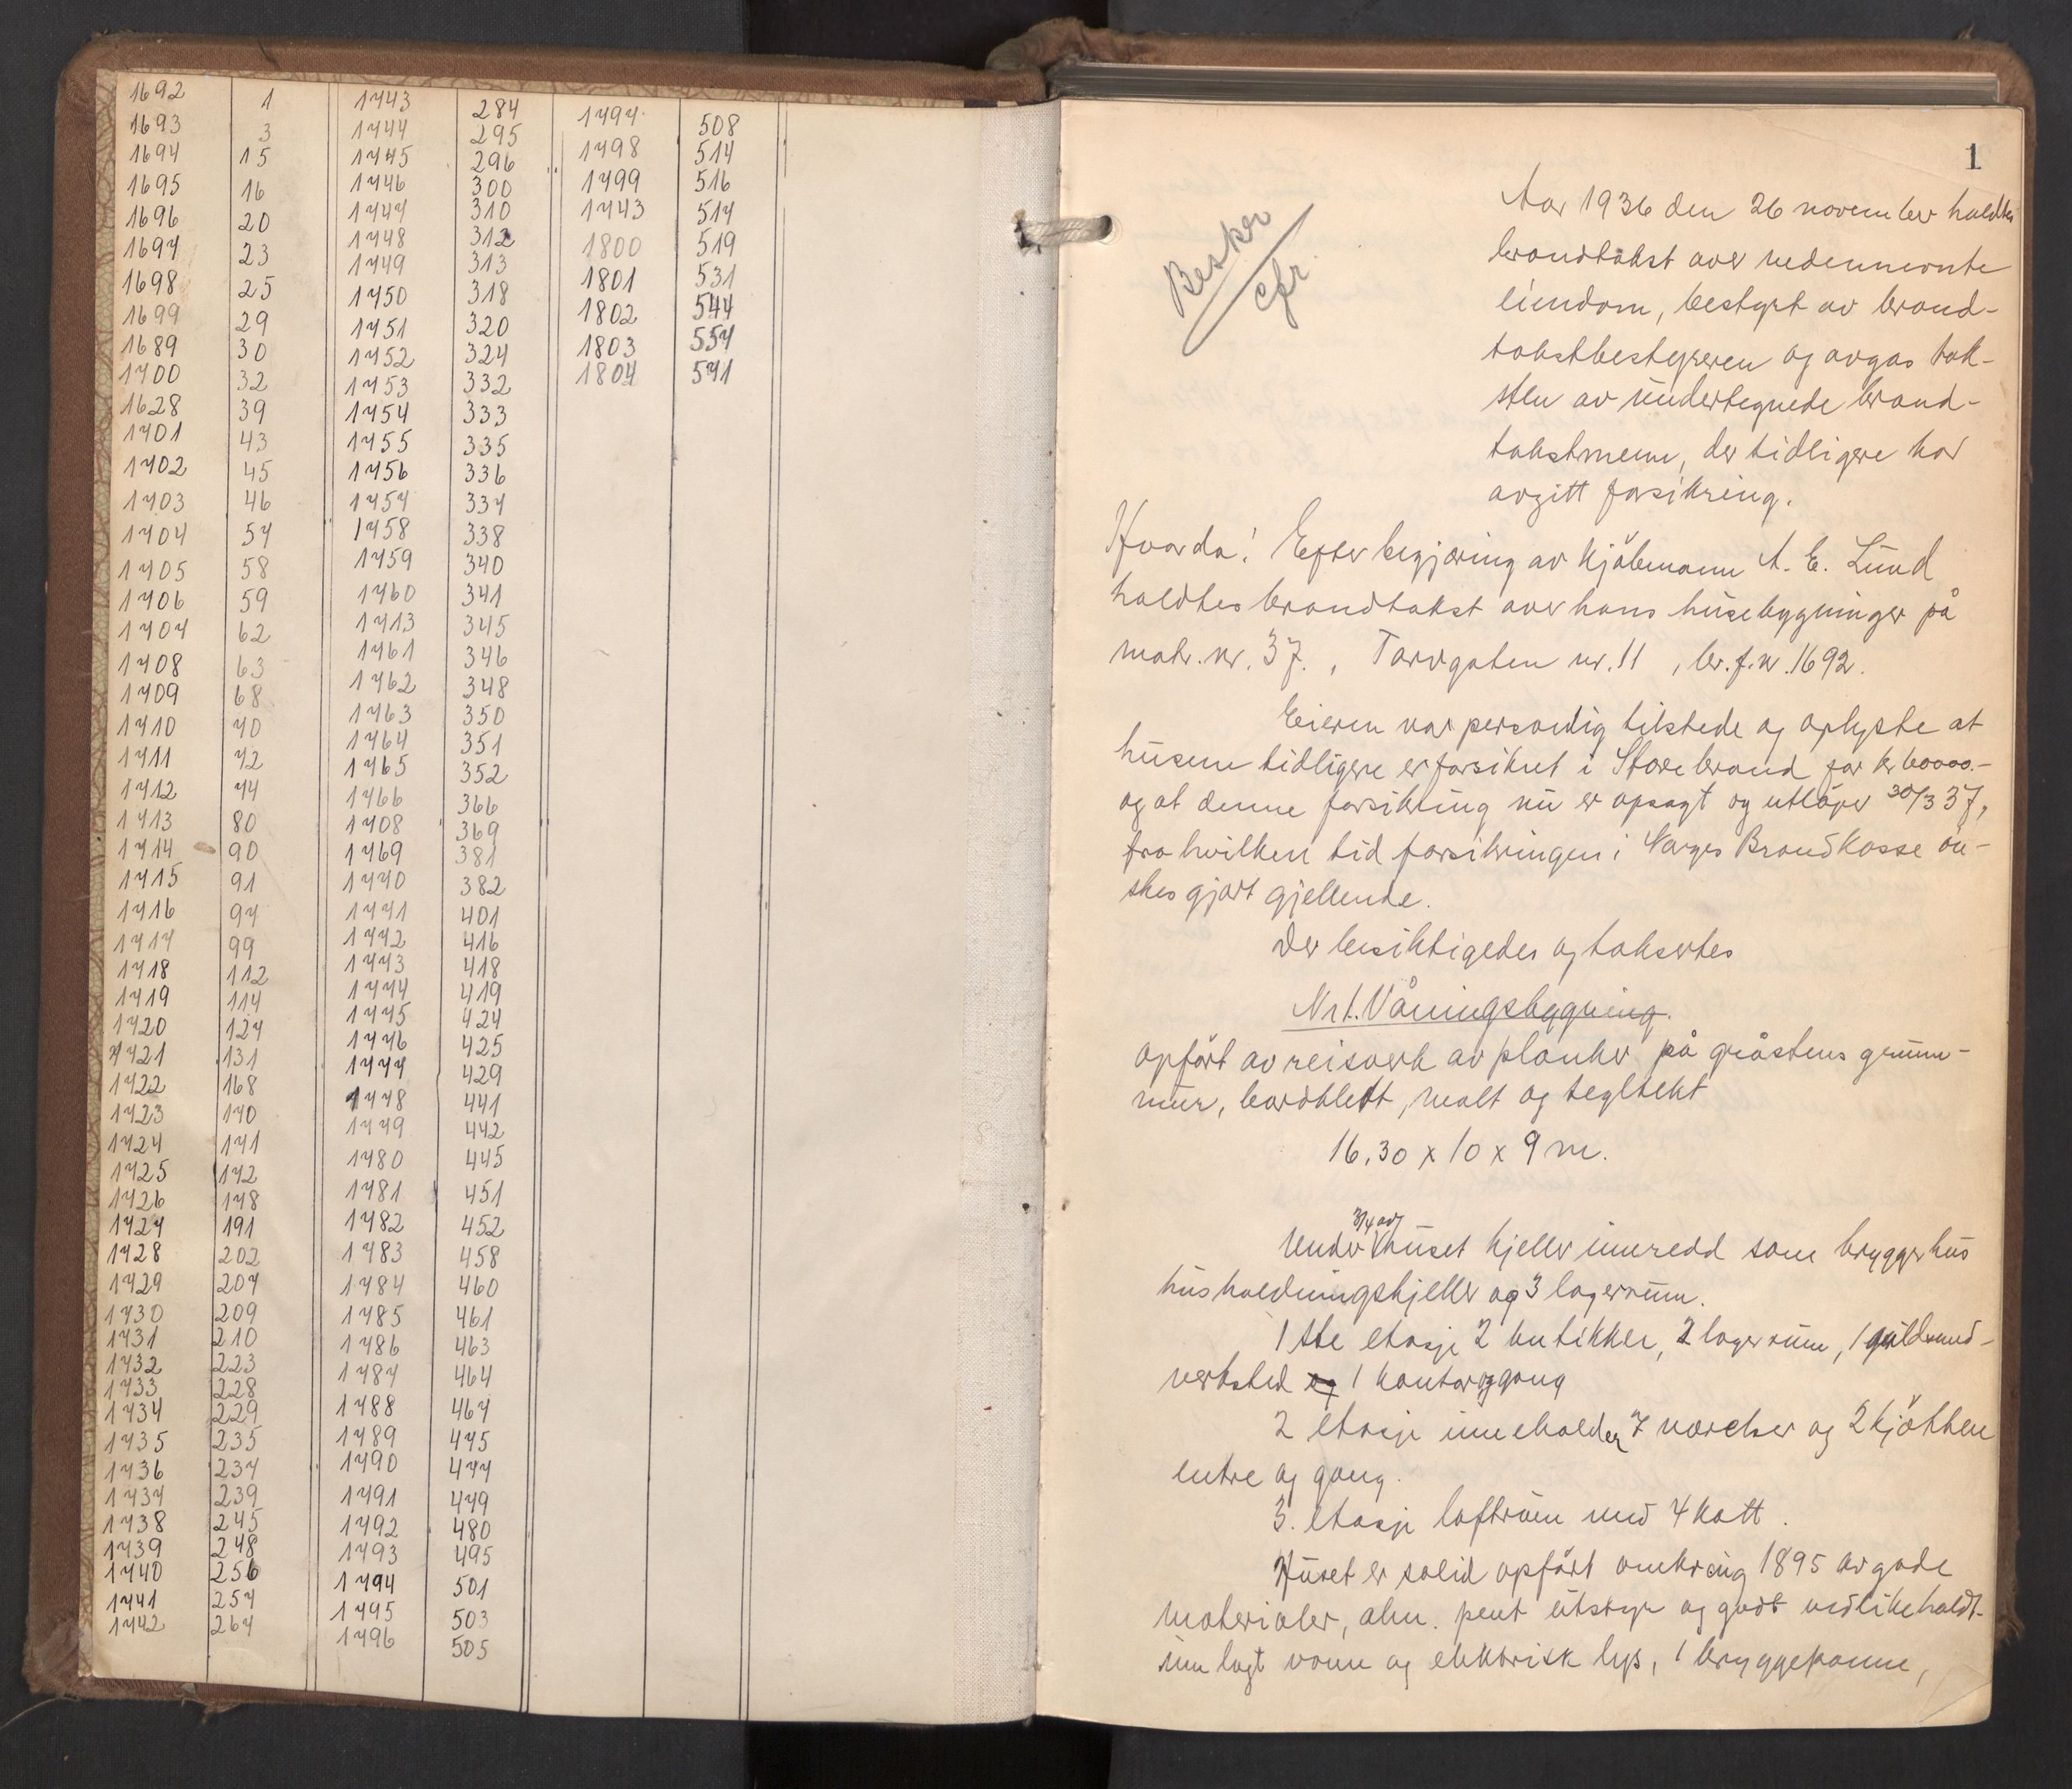 1692 1
1693 3
1694 15
1695 16
1696 20
1697 23
1698 25
1699 29
1689 30
1700 32
1628 39
1701 43
1702 45
1703 46
1704 57
1705 58
1706 59
1707 62
1708 63
1709 68
1710 70
1711 72
1712 74
1713 80
1714 90
1715 91
1716 97
1717 99
1718 112
1719 114
1720 127
1721 131
1722 168
1723 170
1724 171
1725 172
1726 178
1727 191
1728 202
1729 207
1730 209
1731 210
1732 223
1733 228
1734 229
1735 235
1736 237
1737 239
1738 245
1739 248
1740 256
1741 257
1742 267
1743 284
1744 295
1745 296
1746 300
1747 310
1748 312
1749 313
1750 318
1751 320
1752 324
1753 332
1754 333
1755 335
1756 336
1757 337
1758 338
1759 340
1760 341
1713 345
1761 346
1762 348
1763 350
1764 351
1765 352
1766 366
1708 369
1769 381
1770 382
1771 401
1772 416
1773 418
1774 419
1775 424
1776 425
1777 429
1778 441
1779 442
1780 445
1781 451
1782 452
1783 458
1784 460
1785 461
1786 463
1787 464
1788 467
1789 475
1790 477
1791 479
1792 480
1793 495
1794 501
1795 503
1796 505
1797 508
1798 514
1799 516
1743 517
1800 519
1801 531
1802 544
1803 557
1804 571
1
Beskr
cfr
Aar 1936 den 26 november holdtes
brandtakst over nedennevnte
eiendom, bestyrt av brand-
takstbestyreren og avgav tak-
sten av undertegnede brand-
takstmenn, der tidligere har
avgitt forsikring.
Hvorda! Efter begjæring av kjøbmann A. E. Lund
holdtes brandtakst over hans husebygninger på
matr. nr. 37., Torvgaten nr. 11, br. f. nr. 1692.
Eieren var personlig tilstede og oplyste at
husene tidligere er forsikret i Storebrand for kr 60000.-
og at denne forsikring nu er opsagt og utløper 30/3 37,
fra hvilken tid forsikringen i Norges Brandkasse øn-
skes gjort gjellende.
Der besiktigedes og taksertes
Nr 1. Våningsbygning.
opført av reisverk av planker på gråstens grunn-
mur, bordklett, malt og tegltekt
16,30 x 10 x 9 m.
Under 3/4 av huset kjeller innredd som bryggerhus
husholdningskjeller og 3 lagerrum.
1ste etasje 2 butikker, 2 lagerrum, 1 guldsmed-
verksted og 1 kontor og gang
2 etasje inneholder 7 værelser og 2 kjøkken
entre og gang.
3. etasje loftrum med 4 kott.
Huset er solid opført omkring 1895 av gode
materialer, alm. pent utstyr og godt vedlikeholdt.
inn lagt vann og elektrisk lys, 1 bryggepanne,